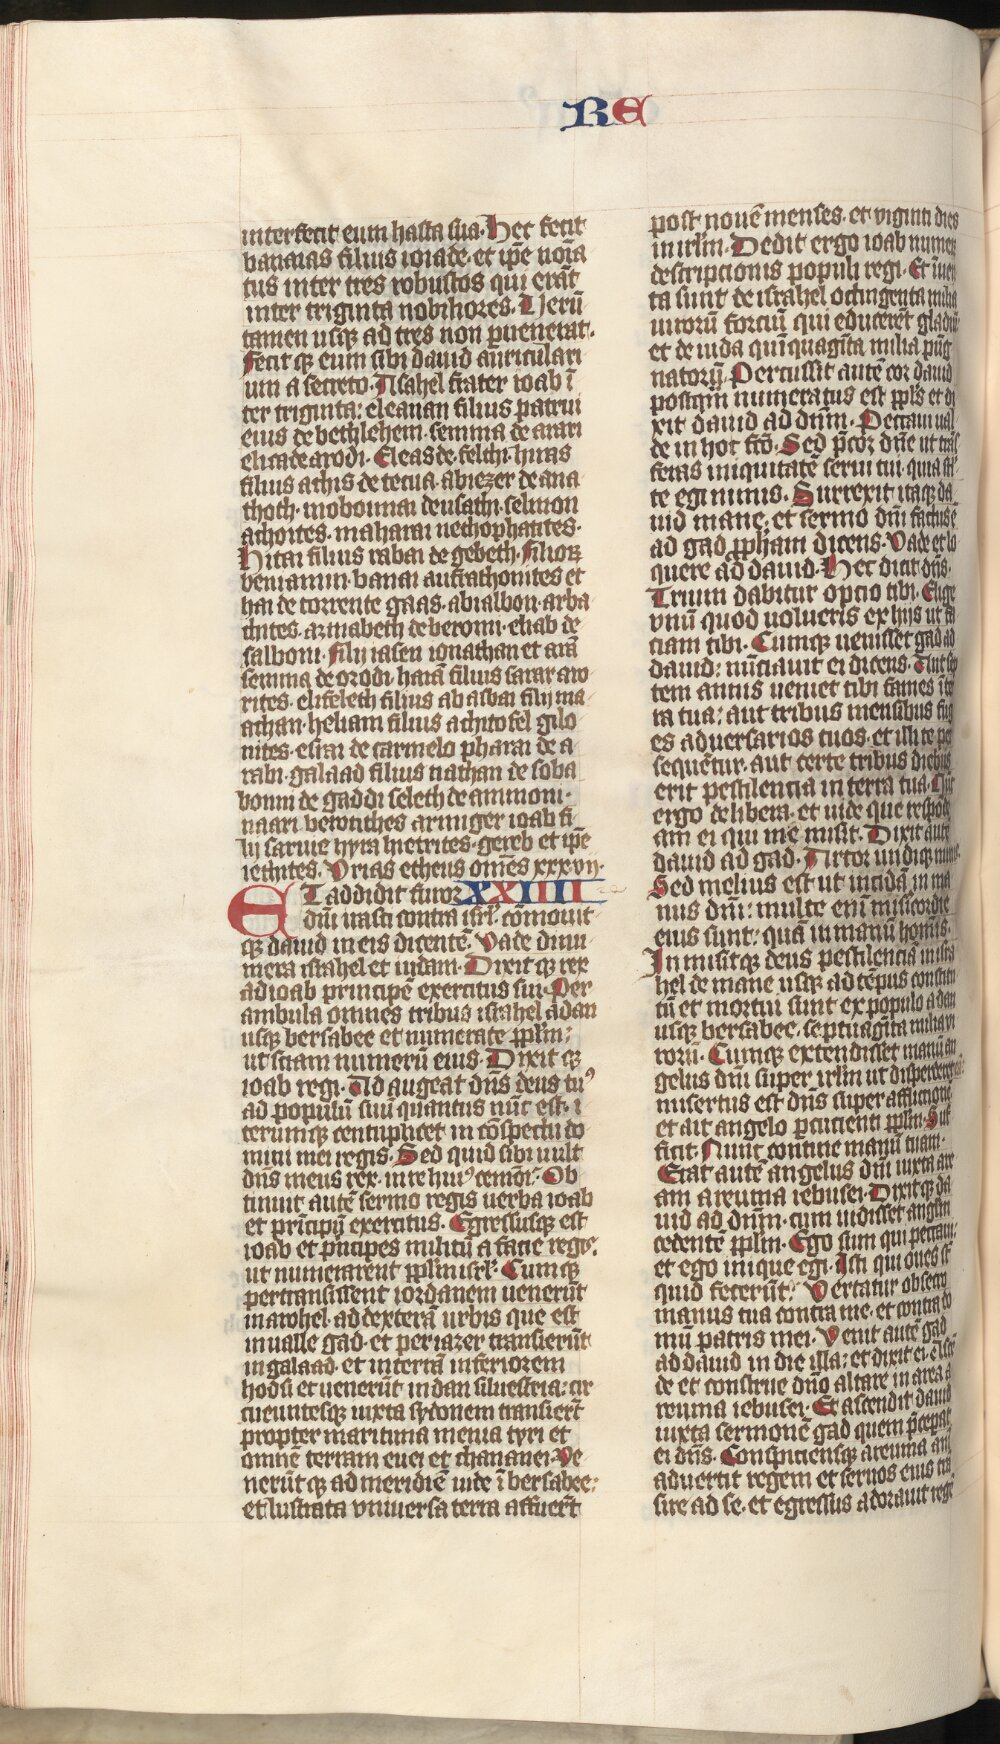 RE
interfecit eum hasta sua. Hec fecit
banaias filius ioiade. et ip̄e noīa
tus inter tres robustos qui erāt
inter triginta nobiliores. Uerū
tamen usq; ad tres non puenerat.
Fecit q; eum sibi dauid auriculari
um a secreto. Asahel frater ioab ī
ter triginta: eleanan filius patrui
eius de bethlehem. semma de arari
elica de arodi. Eleas de felthi. hiras
filius achis de tecua. abiezer de ana
thoth. mobonnai de usathi. selmon
achoites. maharai nethophatites.
Hitai filius rabai de gebeth. filiorꝫ
beniamin. banai aufrathonites et
hai de torrente gaas. abialbon arba
thites. azmabeth de beromi. eliab de
salboni. filij iasen ionathan et arā
semma de orodi. haiā filius sarar aro
rites. elifeleth filius ab asbai filij ma
athan. heliam filius achitofel gilo
nites. esrai de carmelo pharai de a
rabi. galaad filius nathan de soba
bonni de gaddi seleth de ammoni.
naari berotithes armiger ioab fi
lij saruie hyra hietrites. gereb et ip̄e
iethites. Urias etheus om̄es xxxvij.
ET addidit furor XXIIII
dn̄i irasci contra isrl̄. cōmouit
q; dauid in eis dicentē. Vade dinu
mera israhel et iudam. Dixit q; rex
ad ioab principē exercitus sui. Per
ambula omnes tribus israhel a dan
usq; bersabee et numerate pplm̄:
ut sciam numerū eius. Dixit q;
ioab regi. Ad augeat dn̄s deus tuꝰ
ad populū suū quantus nūc est. i
terumq; centuplicet in cōspectu do
mini mei regis. Sed quid sibi uult
dn̄s meus rex in re huiꝰcemōi. Ob
tinuit autē sermo regis uerba ioab
et prīcipū exercitus. Egressusq; est
ioab et p̄ncipes militū a facie regis.
ut numerarent pplm̄ isrl̄. Cumq;
pertransissent iordanem uenerūt
in arohel. ad dexterā urbis que est
in ualle gad. et per iazer transierūt
in galaad. et in terrā inferiorem
hodsi et uenerūt in dan siluestria: cir
cueuntesq; iuxta sydonem transierūt
propter maritima menia tyri et
omnē terram euei et chananei. Ve
nerūt q; ad meridiē iude ī bersabee:
et lustrata vniuersa terra affuerūt
post nouē menses. et viginti dies
in irlm̄. Dedit ergo ioab numerꝫ
descriptionis populi regi. Et īuen
ta sunt de israhel octingenta milia
uirorū fortiū qui educerēt gladiū
et de iuda quīquagīta milia pug
natorū. Percussit autē cor dauid
postqm̄ numeratus est ppls̄ et di
xit dauid ad dn̄m. Peccaui ual
de in hoc fcō. Sed p̄cor dn̄e ut trās
feras iniquitatē serui tui. quia
te egi nimis. Surrexit itaq; da
uid mane. et sermo dn̄i factus ē
ad gad pp̄ham dicens. Vade et lo
quere ad dauid. Hec dicit dn̄s.
Trium dabitur optio tibi. Elige
vnū quod uolueris ex hijs ut fa
ciam tibi. Cumq; uenisset gad ad
dauid: nūtiauit ei dicens. Aut sep
tem annis ueniet tibi fames ī ter
ra tua: aut tribus mensibus fugi
es aduersarios tuos. et illi te per
sequētur. aut certe tribus diebus
erit pestilencia in terra tua.
ergo delibera. et uide que respōde
am ei qui me misit. Dixit autē
dauid ad gad. Artor undiq; nimis.
Sed melius est ut incidā in ma
nus dn̄i: multe enī misericordie
eius sunt: quā in manū hoīnis.
In misit q; deus pestilenciā in isra
hel de mane usq; ad tēpus constitu
tū et mortui sunt ex populo a dan
usq; bersabee. septuagīta milia vi
rorū. Cumq; extendisset manū an
gelus dn̄i super irlm̄ ut disperderet
misertus est dn̄s super afflictionē
et ait angelo pcutienti pplm̄. Suf
ficit. Nunc contine manū tuam.
Erat autē angelus dn̄i iuxta are
am areuma iebusei. Dixit q; da
uid ad dn̄m. cum uidisset anglm̄
cedentē pplm̄. Ego sum qui peccaui.
et ego inique egi. Isti qui oues st̄
quid fecerūt: Vertatur obsecro
manus tua contra me. et contra do
mū patris mei. Venit autē gad
ad dauid in die illa: et dixit ei. Ascē
de et construe dn̄o altare in area a
reuma iebusei. Et ascendit dauid
iuxta sermonē gad quem p̄ceperat
ei dn̄s. Conspiciensq; areuma ani
aduertit regem et seruos eius trā
sire ad se. et egressus adorauit regē